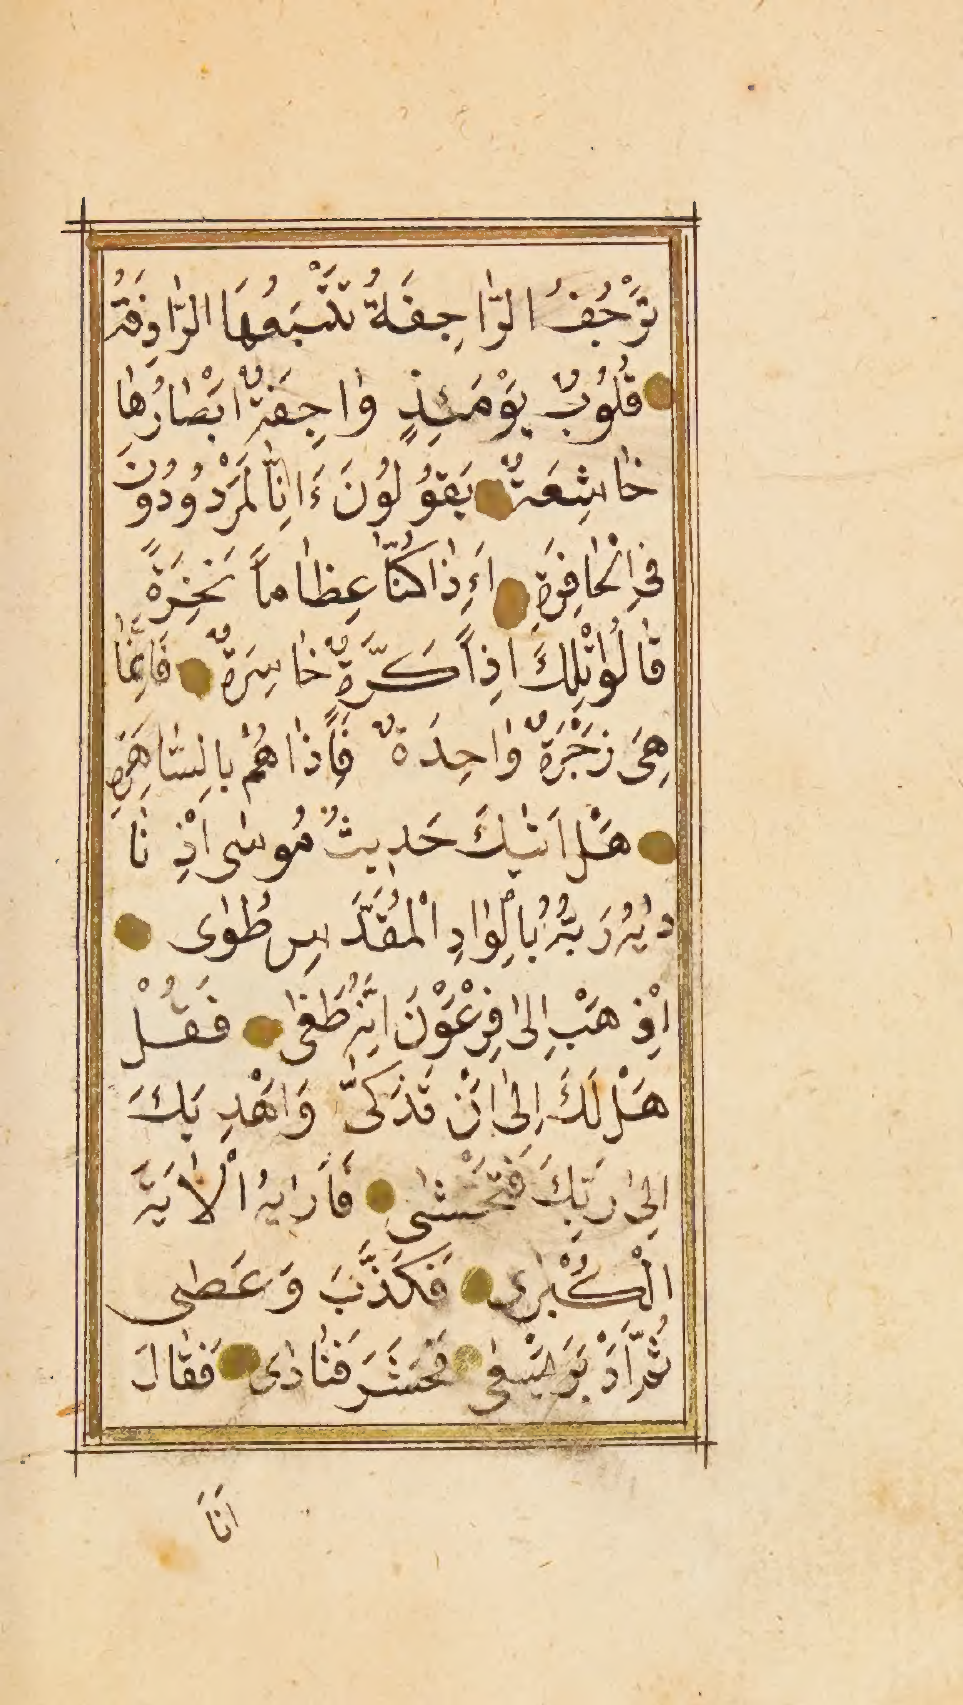 تَرْجُفُ الرَّاجِفَةُ تَتْبَعُهَا الرَّادِفَةُ
قُلُوبٌ يَوْمَئِذٍ وَاجِفَةٌ اَبْصَارُهَا
خَاشِعَةٌ يَقُولُونَ ءَاِنَّا لَمَرْدُودُونَ
فِي الْحَافِرَةِ اَءِذَا كُنَّا عِظَاماً نَخِرَةً
قَالُوا تِلْكَ اِذاً كَرَّةٌ خَاسِرَةٌ فَاِنَّمَا
هِيَ زَجْرَةٌ وَاحِدَةٌ فَاِذَا هُمْ بِالسَّاهِرَةِ
هَلْ اَتٰيكَ حَدِيثُ مُوسٰى اِذْ نَا
دٰيهُ رَبُّهُ بِالْوَادِ الْمُقَدَّسِ طُوٰى
اِذْهَبْ اِلٰى فِرْعَوْنَ اِنَّهُ طَغٰى فَقُلْ
هَلْ لَكَ اِلٰى اَنْ تَزَكّٰى وَاَهْدِيَكَ
اِلٰى رَبِّكَ فَتَخْشٰى فَاَرٰيهُ الْاٰيَةَ
الْكُبْرٰى فَكَذَّبَ وَعَصٰى
ثُمَّ اَدْبَرَ يَسْعٰى فَحَشَرَ فَنَادٰى فَقَالَ
اَنَا